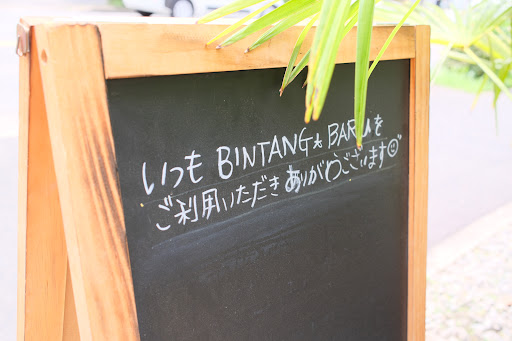 いつも BINTANG BARUを
ご利用いただき ありがとうございます